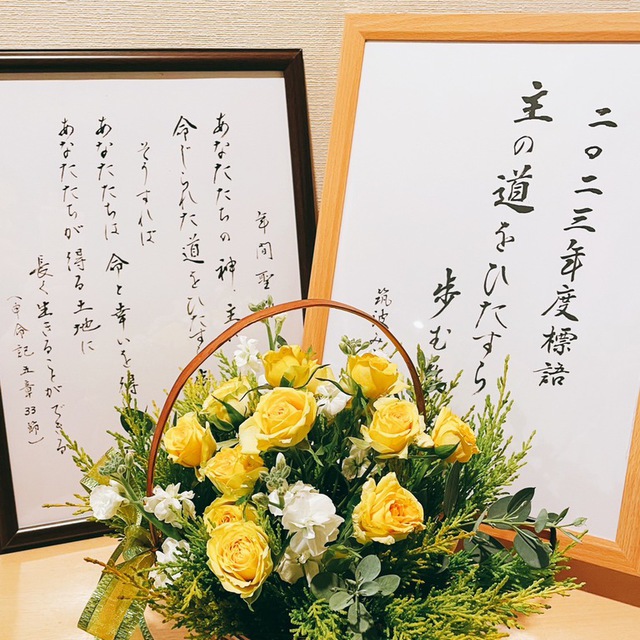 年間聖
あなたたちの神、主
命じられた道をひたす
そうすれば
あなたたちは 命と幸いを得
あなたたちが 得る土地に
長く生きることができる
(申命記五章33節)
二〇二三年度標語
主の道をひたすら
歩む
筑波み